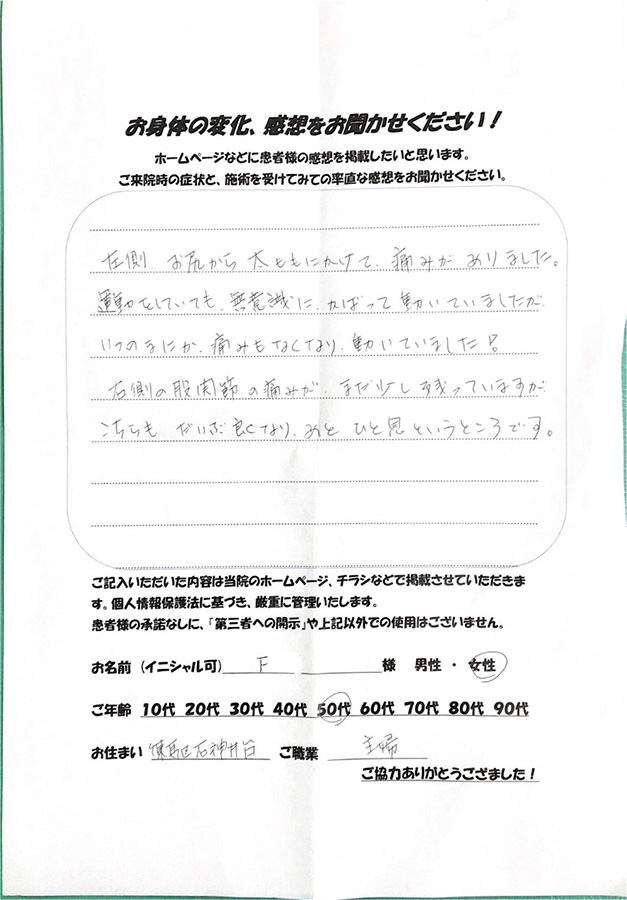 お身体の変化、感想をお聞かせください！
ホームページなどに患者様の感想を掲載したいと思います。
ご来院時の症状と、施術を受けてみての率直な感想をお聞かせください。
左側 お尻から 太ももにかけて、痛みが ありました。
運動をしていても、無意識に、かばって 動いていましたが、
いつのまにか、痛みもなくなり、動いていました！
右側の股関節の痛みが、まだ少し残っていますが、
こちらも だいぶ良くなり、あと ひと息 というところです。
ご記入いただいた内容は当院のホームページ、チラシなどで掲載させていただきま
す。個人情報保護法に基づき、厳重に管理いたします。
患者様の承諾なしに、「第三者への開示」や上記以外での使用はございません。
お名前（イニシャル可） F 様 男性 ・ 女性
ご年齢 10代 20代 30代 40代 50代 60代 70代 80代 90代
お住まい 練馬区石神井台 ご職業 主婦
ご協力ありがとうござました！